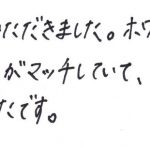 いただきました。ホワ
がマッチしていて、
たです。